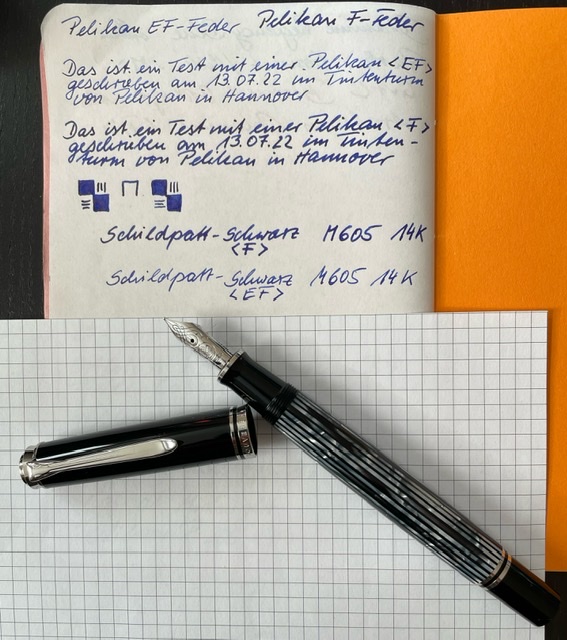 Pelikan EF-Feder Pelikan F-Feder
Das ist ein Test mit einer Pelikan <EF>
geschrieben am 13.07.22 im Tintenturm
von Pelikan in Hannover
Das ist ein Test mit einer Pelikan <F>
geschrieben am 13.07.22 im Tinten-
turm von Pelikan in Hannover
Schildpatt-Schwarz M605 14K
<F>
Schildpatt-Schwarz M605 14K
<EF>